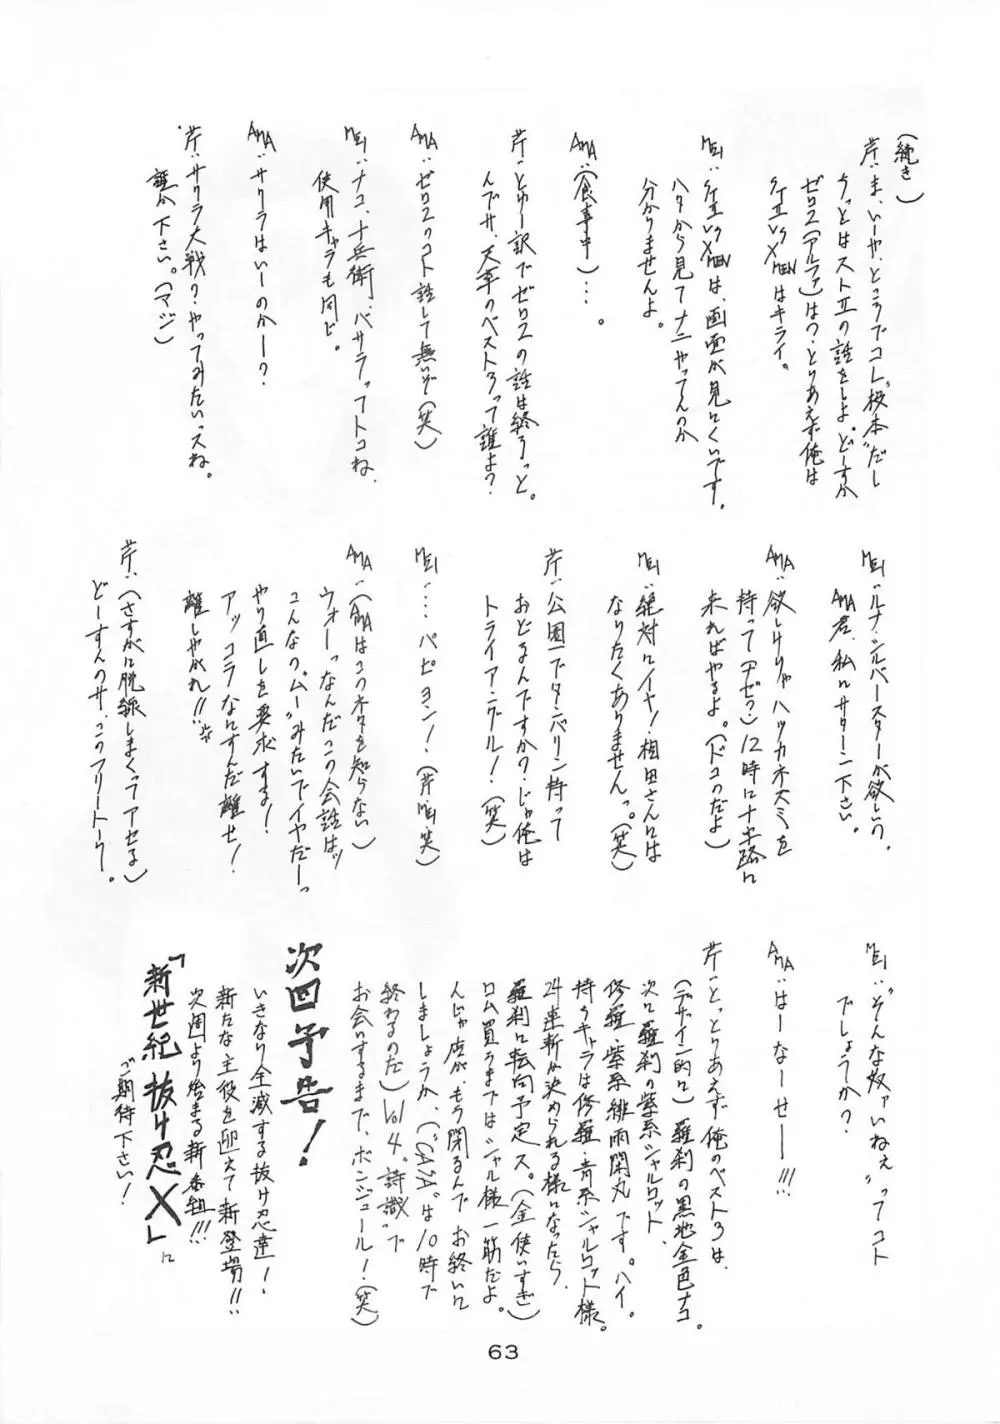 (続き)
芹:ま、いーや、ところでコレ"校本"だし
ちっとはストⅡの話をしよ。どーすか
ゼロ2(アルファ)は?とりあえず俺は
VS X MENはキライ。
MEI:VS X MENは、画面が見にくいです。
ハタから見てナニやってんのか
分かりませんよ。
AMA:(食事中)…。
芹:とゆー訳でゼロ2の話は終ろっと。
んでサ、天草のベスト3って誰よ?
AMA:ゼロ2のコト話して無いぞ(笑)
MEI:ナコ、十兵衛、バサラってトコね、
使用キャラも同じ。
AMA:サクラはいーのかー?
芹:サクラ大戦?やってみたいっスね。
誰か下さい。(マジ)
MEI:"ルナ・シルバースターが欲しいの、
AMA君、私にサターン下さい。
AMA:欲しけりゃハツカネズミを
持って 12時に十字路に
来ればやるよ。(ドコのだよ)
MEI:絶対にイヤ!相田さんには
なりたくありません。(笑)
芹:公園でタンバリン持って
おどるんですか?じゃ俺は
トライアングル!(笑)
MEI:…パピヨン!(芹・MEI笑)
AMA:(AMAはこのネタを知らない)
ウォーっなんだこの会話はッ
こんなの"ムー"みたいでイヤだーっ
やり直しを要求する!
アッコラなにすんだ離せ!
離しやがれ!!
芹:(さすがに脱線しまくってアセる)
どーすんのサ、このフリートーク。
MEI:"そんな奴ァいねぇ"ってコト
でしょうか?
AMA:はーなーせー!!!
芹:とっとりあえず俺のベスト3は、
(デザイン的に)羅刹の黒地金色ナコ。
次に羅刹の紫系シャルロット、
修羅・紫系緋雨閑丸です。ハイ。
持ちキャラは修羅・青系シャルロット様。
24連斬が決められる様になったら、
羅刹に転向予定っス。(金使いすぎ)
ロム買うまではシャル様一筋だよ。
んじゃ店が、もう閉るんでお終いに
しましょうか、("CASA"は10時で
終わるのだ)Vol 4.「詩識」で
お会いするまで、ボンジュール!(笑)
次回予告!
いきなり全滅する抜け忍達!
新たな主役を迎えて新登場!!
次週より始まる新番組!!!
「新世紀抜け忍X」に
ご期待下さい!
63